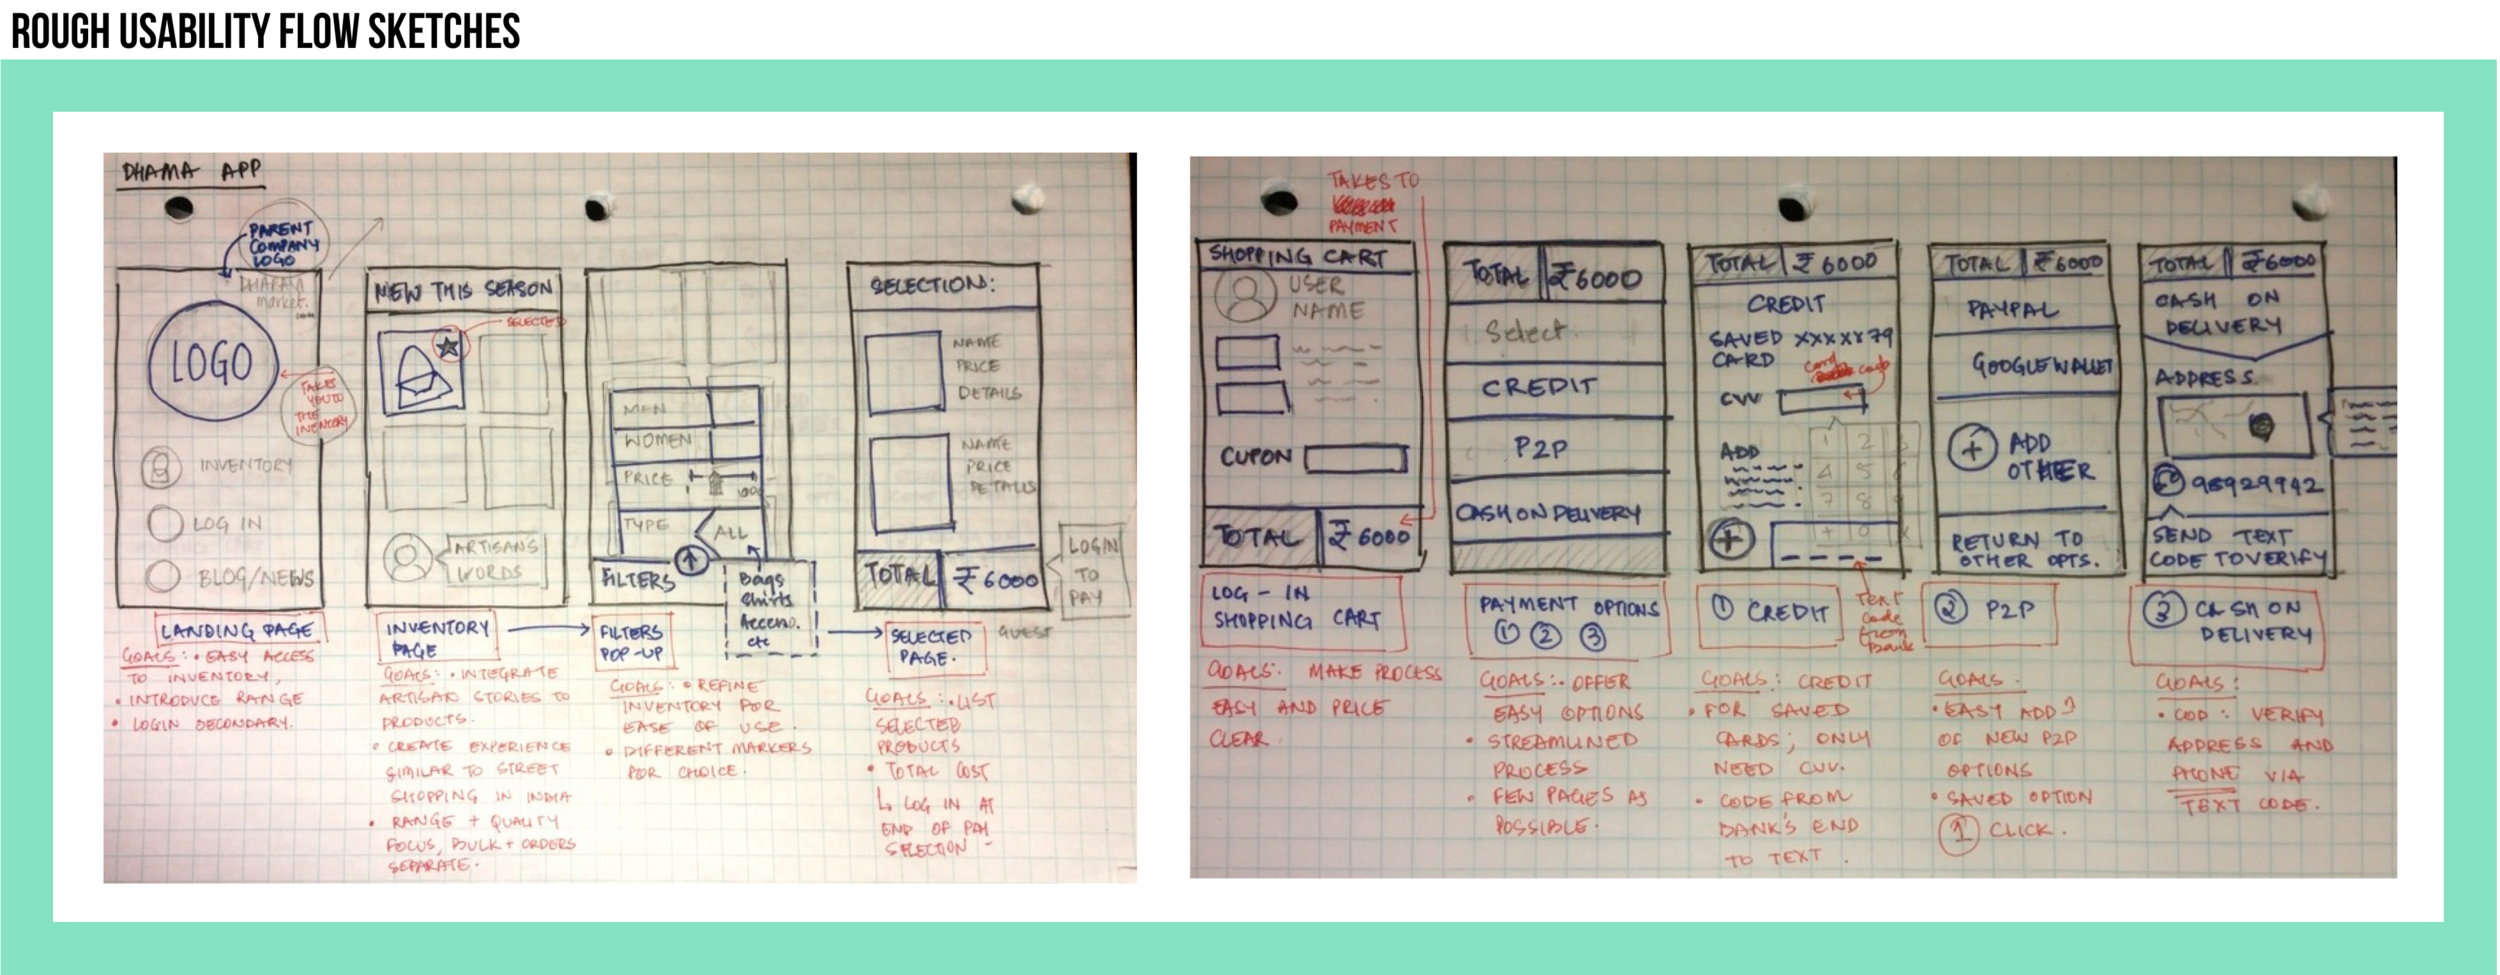 ROUGH USABILITY FLOW SKETCHES
DHAMA APP
PARENT
COMPANY
LOGO
DHARAM
market.
com
LOGO
TAKES
YOU TO
THE
INENTORY
INVENTORY
LOG IN
BLOG/NEWS
LANDING PAGE
GOALS: • EASY ACCESS
TO INVENTORY,
• INTRODUCE RANGE
• LOGIN SECONDARY.
NEW THIS SEASON
SELECTED
ARTISANS
WORDS
INVENTORY
PAGE
GOALS: • INTEGRATE
ARTISAN STORIES TO
PRODUCTS.
• CREATE EXPERIENCE
SIMILAR TO STREET
SHOPPING IN INDIA
• RANGE + QUALITY
FOCUS, BULK + ORDERS
SEPARATE.
MEN
WOMEN
PRICE
TYPE
ALL
FILTERS
Bags
Shirts
Acceso.
etc
FILTERS
POP-UP
GOALS: • REFINE
INVENTORY FOR
EASE OF USE.
• DIFFERENT MARKERS
FOR CHOICE.
SELECTION:
NAME
PRICE
DETAILS
NAME
PRICE
DETAILS
TOTAL ₹ 6000
LOGIN
TO
PAY
GUEST
SELECTED
PAGE.
GOALS: • LIST
SELECTED
PRODUCTS
• TOTAL COST
↳ LOG IN AT
END OF PAY
SELECTION
TAKES TO
PAYMENT
SHOPPING CART
USER
NAME
CUPON
TOTAL ₹ 6000
LOG-IN
SHOPPING CART
GOALS: MAKE PROCESS
EASY AND PRICE
CLEAR.
TOTAL ₹6000
Select.
CREDIT
P2P
CASH ON DELIVERY
PAYMENT OPTIONS
① ② ③
GOALS: • OFFER
EASY OPTIONS
• STREAMLINED
PROCESS
• FEW PAGES AS
POSSIBLE.
TOTAL ₹ 6000
CREDIT
SAVED XXXXX79
CARD
CVV
ADD
1 2 3
4 5 6
7 8 9
+ 0 x
① CREDIT
Text
Code
from
bank
GOALS: CREDIT
• FOR SAVED
CARDS; ONLY
NEED CVV.
• CODE FROM
BANK'S END
TO TEXT.
TOTAL ₹6000
PAYPAL
GOOGLE WALLET
+ ADD
OTHER
RETURN TO
OTHER OPTS.
② P2P
GOALS:
• EASY ADD
OF NEW P2P
OPTIONS
• SAVED OPTION
① CLICK.
TOTAL ₹6000
CASH ON
DELIVERY
ADDRESS
98929942
SEND TEXT
CODE TO VERIFY
③ CASH ON
DELIVERY
GOALS:
• COD: VERIFY
ADDRESS AND
PHONE VIA
TEXT CODE.